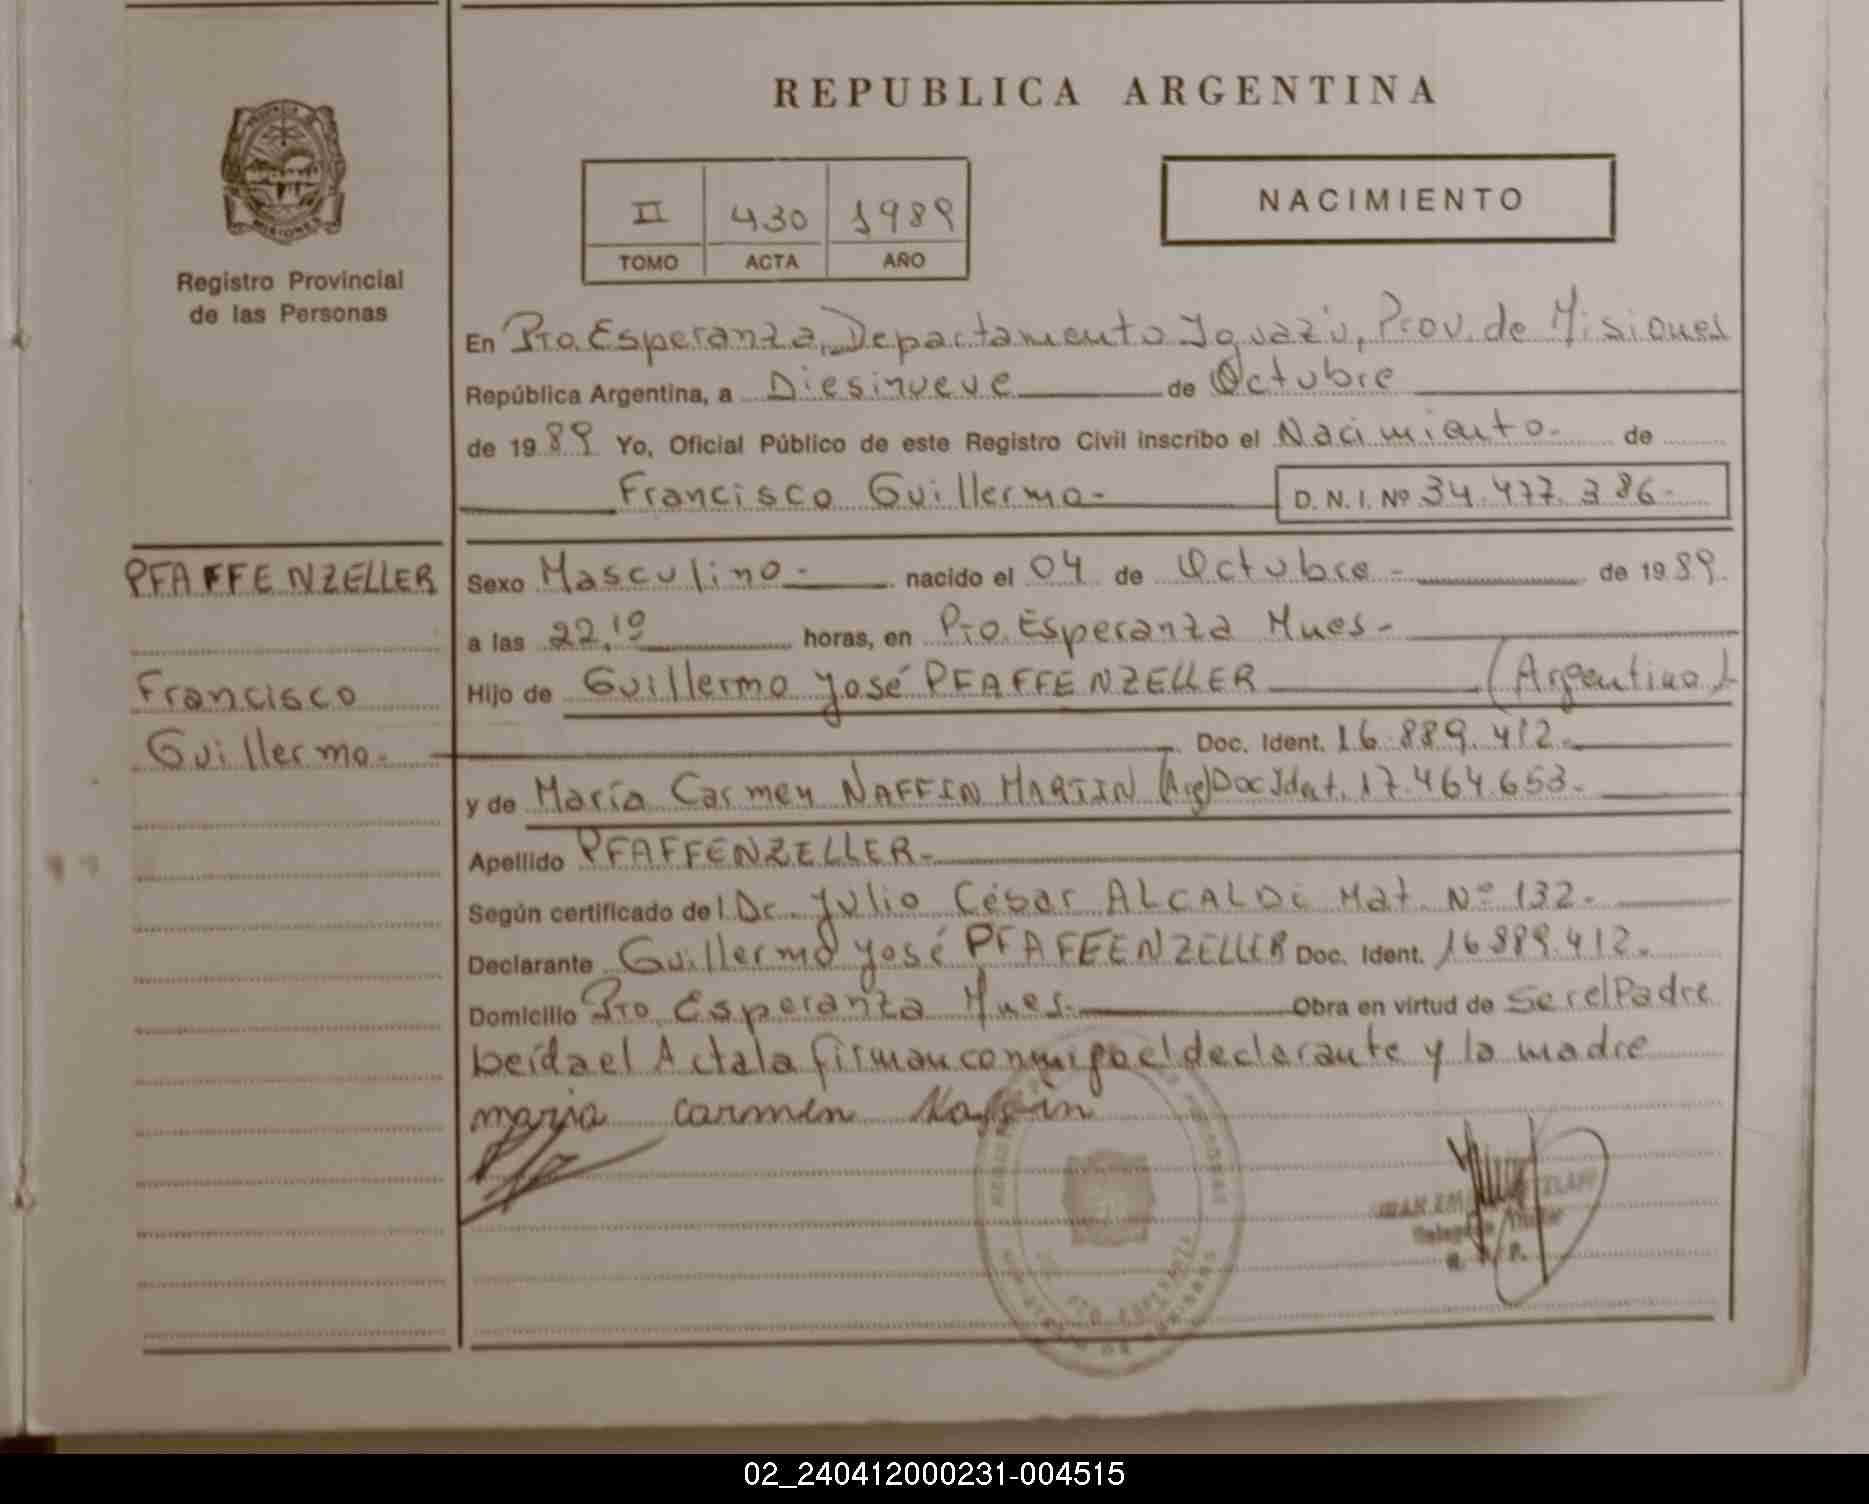 REPUBLICA ARGENTINA
II 430 1989
TOMO ACTA AÑO
NACIMIENTO
PROVINCIA DE
MISIONES
Registro Provincial
de las Personas
En Pto. Esperanza, Departamento Iguazú, Prov. de Misiones
República Argentina, a Diesinueve de Octubre
de 1989 Yo, Oficial Público de este Registro Civil inscribo el Nacimiento- de
Francisco Guillermo- D. N. I. Nº 34.477.386-
PFAFFENZELLER
Francisco
Guillermo-
Sexo Masculino- nacido el 04 de Octubre- de 1989.
a las 22,10 horas, en Pto. Esperanza Mnes-
Hijo de Guillermo José PFAFFENZELLER (Argentino)-
Doc. Ident. 16.889.412-
y de María Carmen NAFFIN MARTIN (Arg) Doc Idnt. 17.464.653-
Apellido PFAFFENZELLER-
Según certificado del Dr. Julio César ALCALDE Mat. Nº 132-
Declarante Guillermo José PFAFFENZELLER Doc. Ident. 16.889.412-
Domicilio Pto. Esperanza Mnes- Obra en virtud de Ser el Padre
Leída el Acta la firman conmigo el declarante y la madre
maria carmen Naffin
PTO. ESPERANZA
Titular
R. P.
02_240412000231-004515